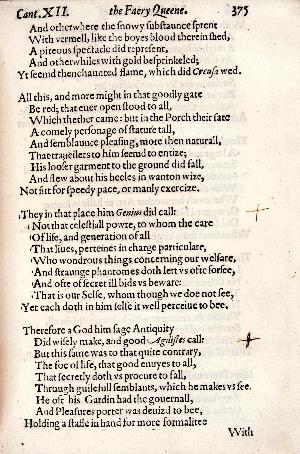 Cant. XII. the Faery Queene. 375
And otherwhere the snowy substaunce sprent
With vermell, like the boyes blood therein shed,
A piteous spectacle did represent,
And otherwhiles with gold besprinkeled;
Yt seemd thenchaunted flame, which did Creusa wed.
All this, and more might in that goodly gate
Be red; that euer open stood to all,
Which thether came: but in the Porch there sate
A comely personage of stature tall,
And semblaunce pleasing, more then naturall,
That traueilers to him seemd to entize;
His looser garment to the ground did fall,
And flew about his heeles in wanton wize,
Not fitt for speedy pace, or manly exercize.
They in that place him Genius did call:
Not that celestiall powre, to whom the care
Of life, and generation of all
That liues, perteines in charge particulare,
Who wondrous things concerning our welfare,
And straunge phantomes doth lett vs ofte forsee,
And ofte of secret ill bids vs beware:
That is our Selfe, whom though we doe not see,
Yet each doth in him selfe it well perceiue to bee.
Therefore a God him sage Antiquity
Did wisely make, and good Agdistes call:
But this same was to that quite contrary,
The foe of life, that good enuyes to all,
That secretly doth vs procure to fall,
Through guilefull semblants, which he makes vs see.
He of this Gardin had the gouernall,
And Pleasures porter was deuizd to bee,
Holding a staffe in hand for more formalitee
With